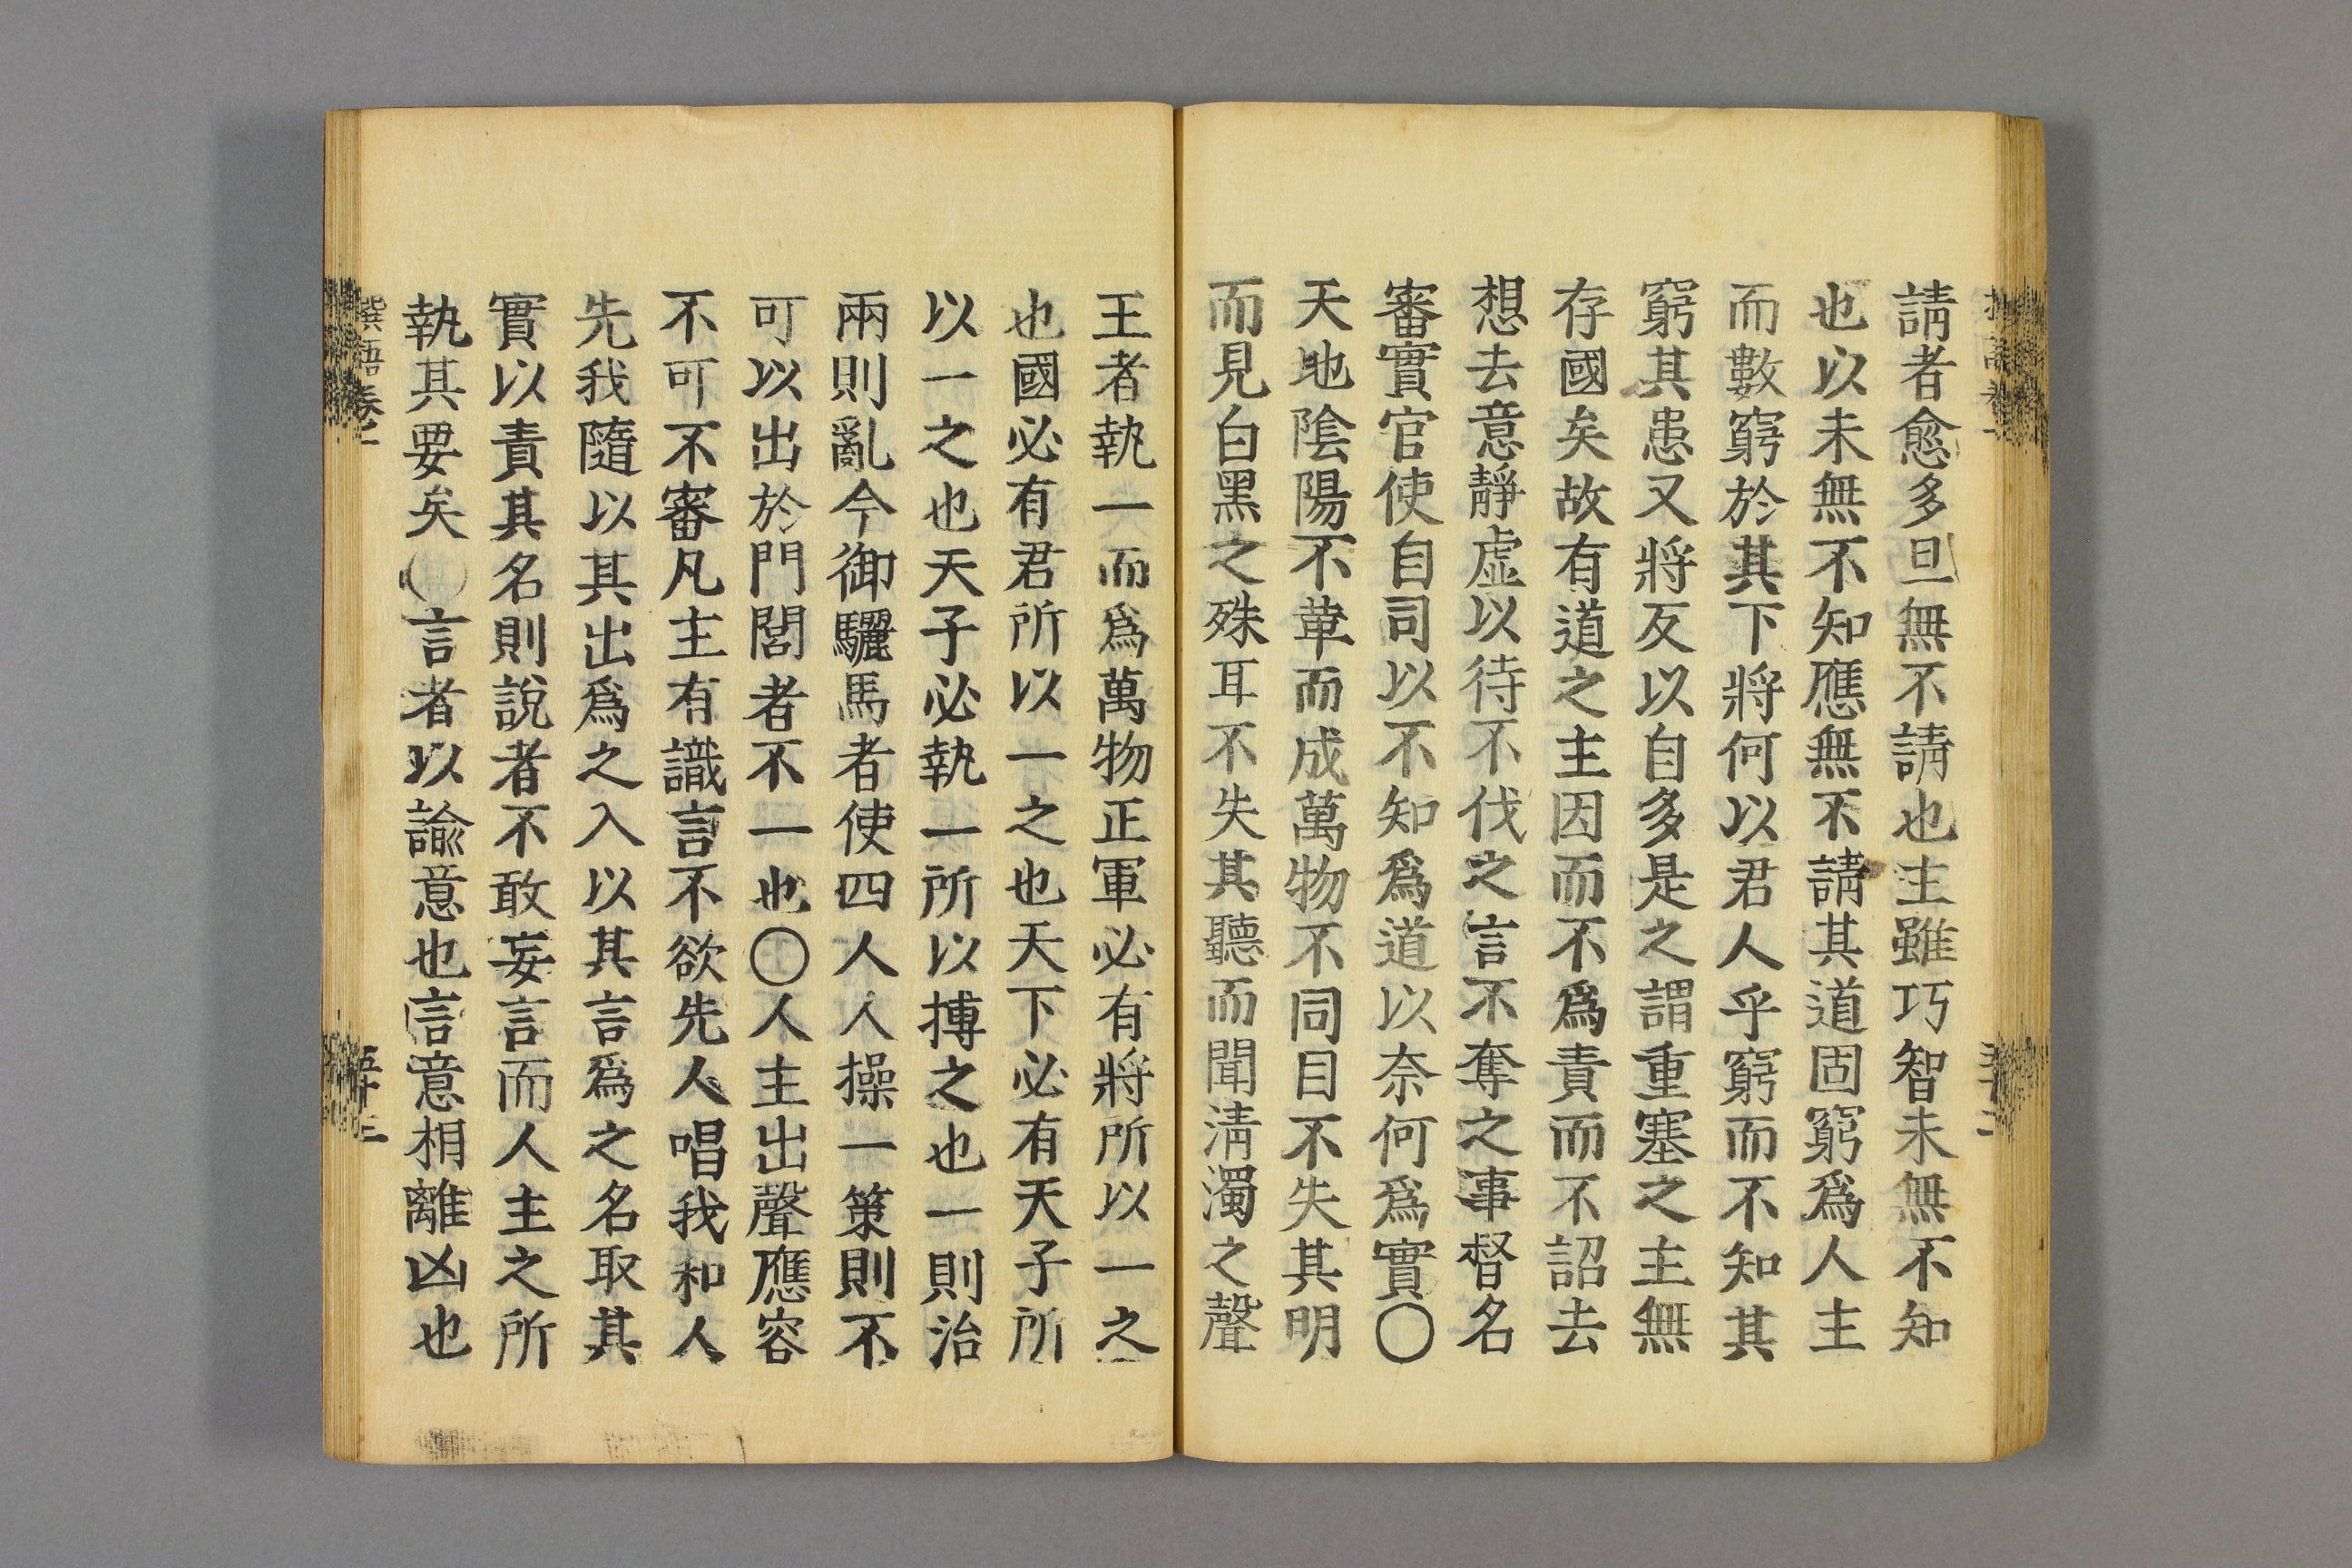 請者愈多且無不請也主雖巧智未無不知
也以未無不知應無不請其道固窮爲人主
而數窮於其下將何以君人乎窮而不知其
窮其患又將反以自多是之謂重塞之主無
存國矣故有道之主因而不爲責而不詔去
想去意靜虛以待不伐之言不奪之事督名
審實官使自司以不知爲道以奈何爲實〇
天地陰陽不革而成萬物不同目不失其明
而見白黑之殊耳不失其聽而聞淸濁之聲
王者執一而爲萬物正軍必有將所以一之
也國必有君所以一之也天下必有天子所
以一之也天子必執一所以摶之也一則治
兩則亂今御驪馬者使四人人操一策則不
可以出於門閭者不一也〇人主出聲應容
不可不審凡主有識言不欲先人唱我和人
先我隨以其出爲之入以其言爲之名取其
實以責其名則說者不敢妄言而人主之所
執其要矣〇言者以諭意也言意相離凶也
撰語卷一